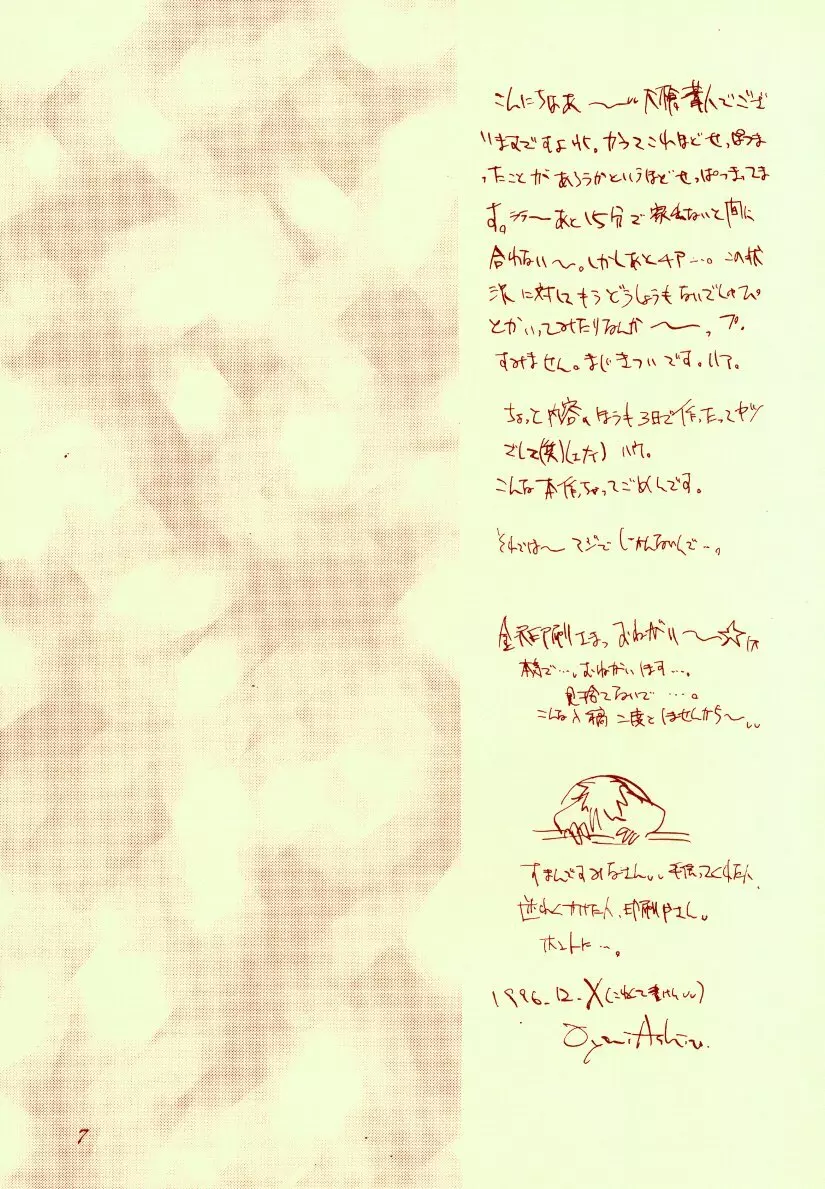 こんにちはあ〜 大槍葦人でござ
いますですよハイ。かつてこれほどせっぱつま
ったことがあろうかというほどせっぱつまってま
す。あと15分で家を出ないと間に
合わない〜。しかしあと4P…。この状
況に対してもうどうしようもないでしゅぴ
とかいってみたりなんか〜、プ。
すみません。まじきついです。ハア。
ちょっと内容のほうも3日で作ったってヤツ
でして(笑) ハウ。
こんな本作っちゃってごめんです。
それでは〜マジで じかんないんで…。
金沢印刷さまっ おねがい〜☆
おねがいします…。
見捨てないで…。
こんな入稿二度としませんから〜
すまんですみなさん 手伝ってくれた人、
迷わくかけた人、印刷屋さん。
ホントに…。
1996.12.X
7